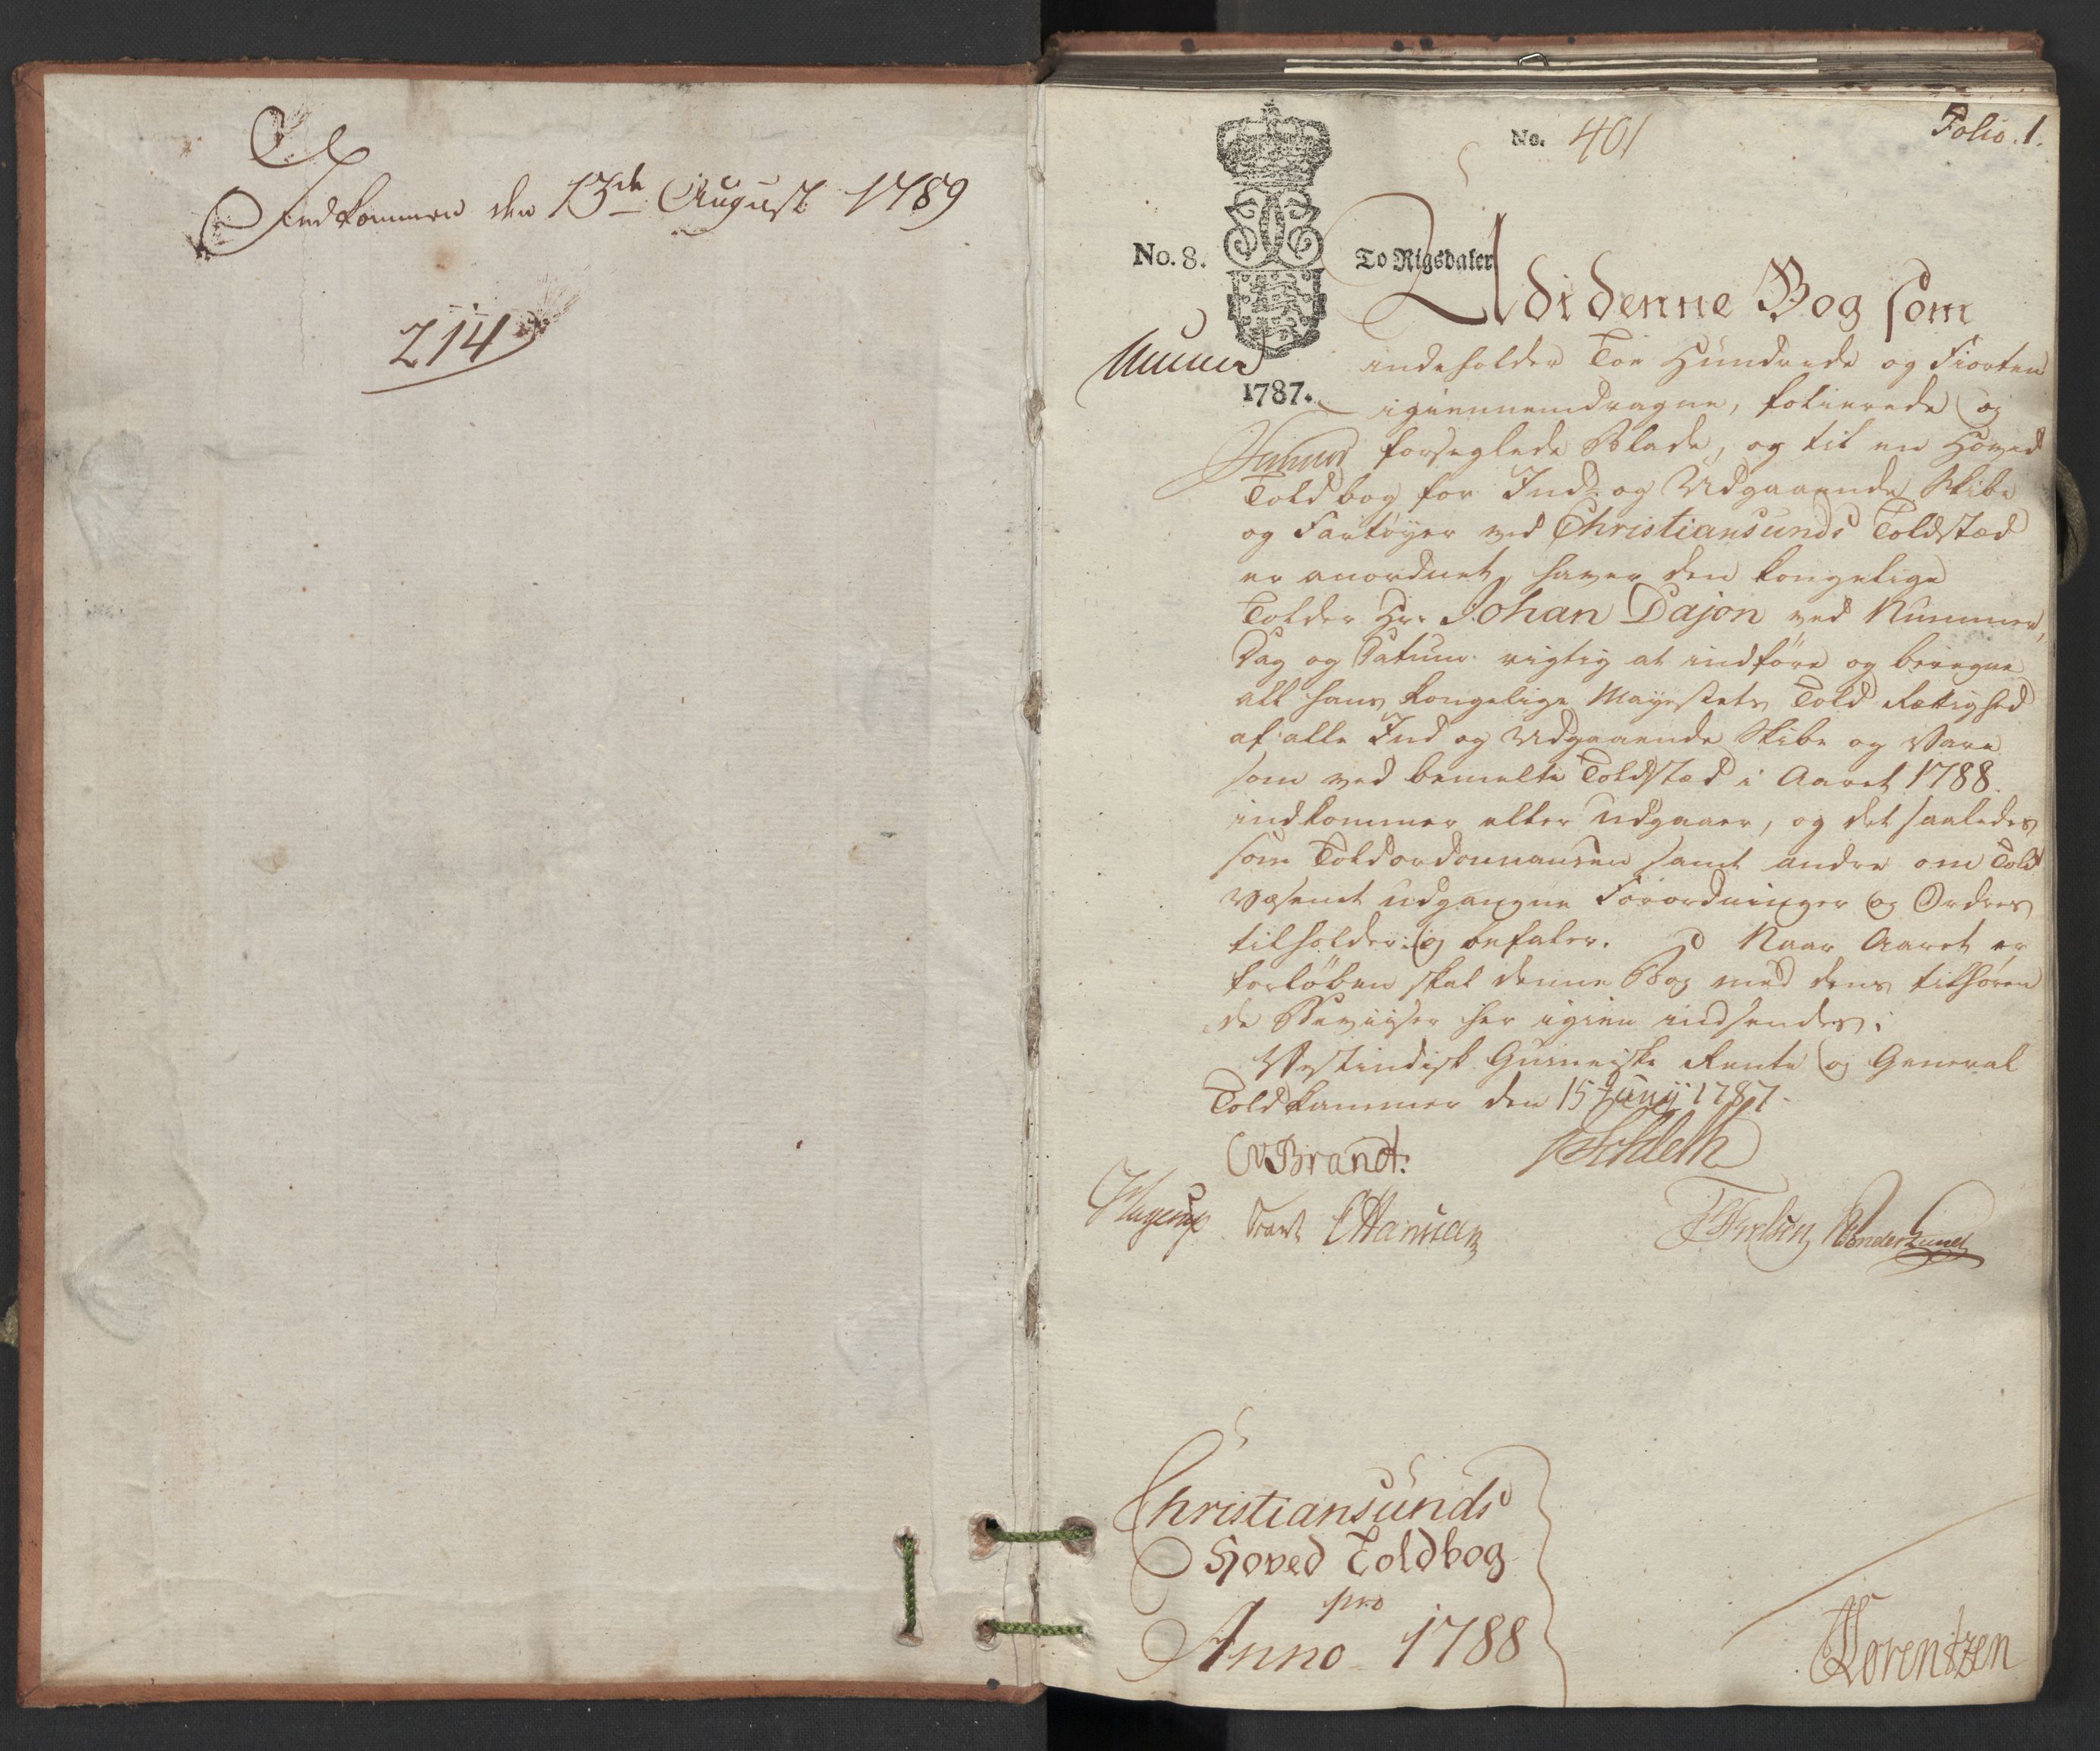 Indkommen den 13de August 1789
214
No. 401
Folio. 1.
No. 8.
To Rigsdaler
1787.
Udi denne Bog som
indeholder Toe Hundrede og Fiorten
igiennemdragne, folierede og
forseglede Blade, og til en Hoved
Toldbog for Ind- og Udgaaende Skibe
og Fartöyer ved Christiansunds Toldsted
er anordnet, haver den kongelige
Tolder Hr. Johan Dajon ved Nummer,
Dag og Datum rigtig at indföre og beregne
alt hans kongelige Mayestets Told Rettighed
af alle Ind og Udgaaende Skibe og Vare
som ved bemelte Toldsted i Aaret 1788.
indkommer eller udgaaer, og det saaledes
som Toldordonnancen samt andre om Told
Væsenet udgangne Forordninger og Ordres
tilholder og befaler. Naar Aaret er
forlöben skal denne Bog med dens tilhören
de Beviiser her igien indsendes.
Vestindisk Guineiske Rente og General
Toldkammer den 15 Junij 1787.
CvBrandt.
Schleth
Hagerup
Lorentzen
Christiansunds
Hoved Toldbog
pro
Anno 1788